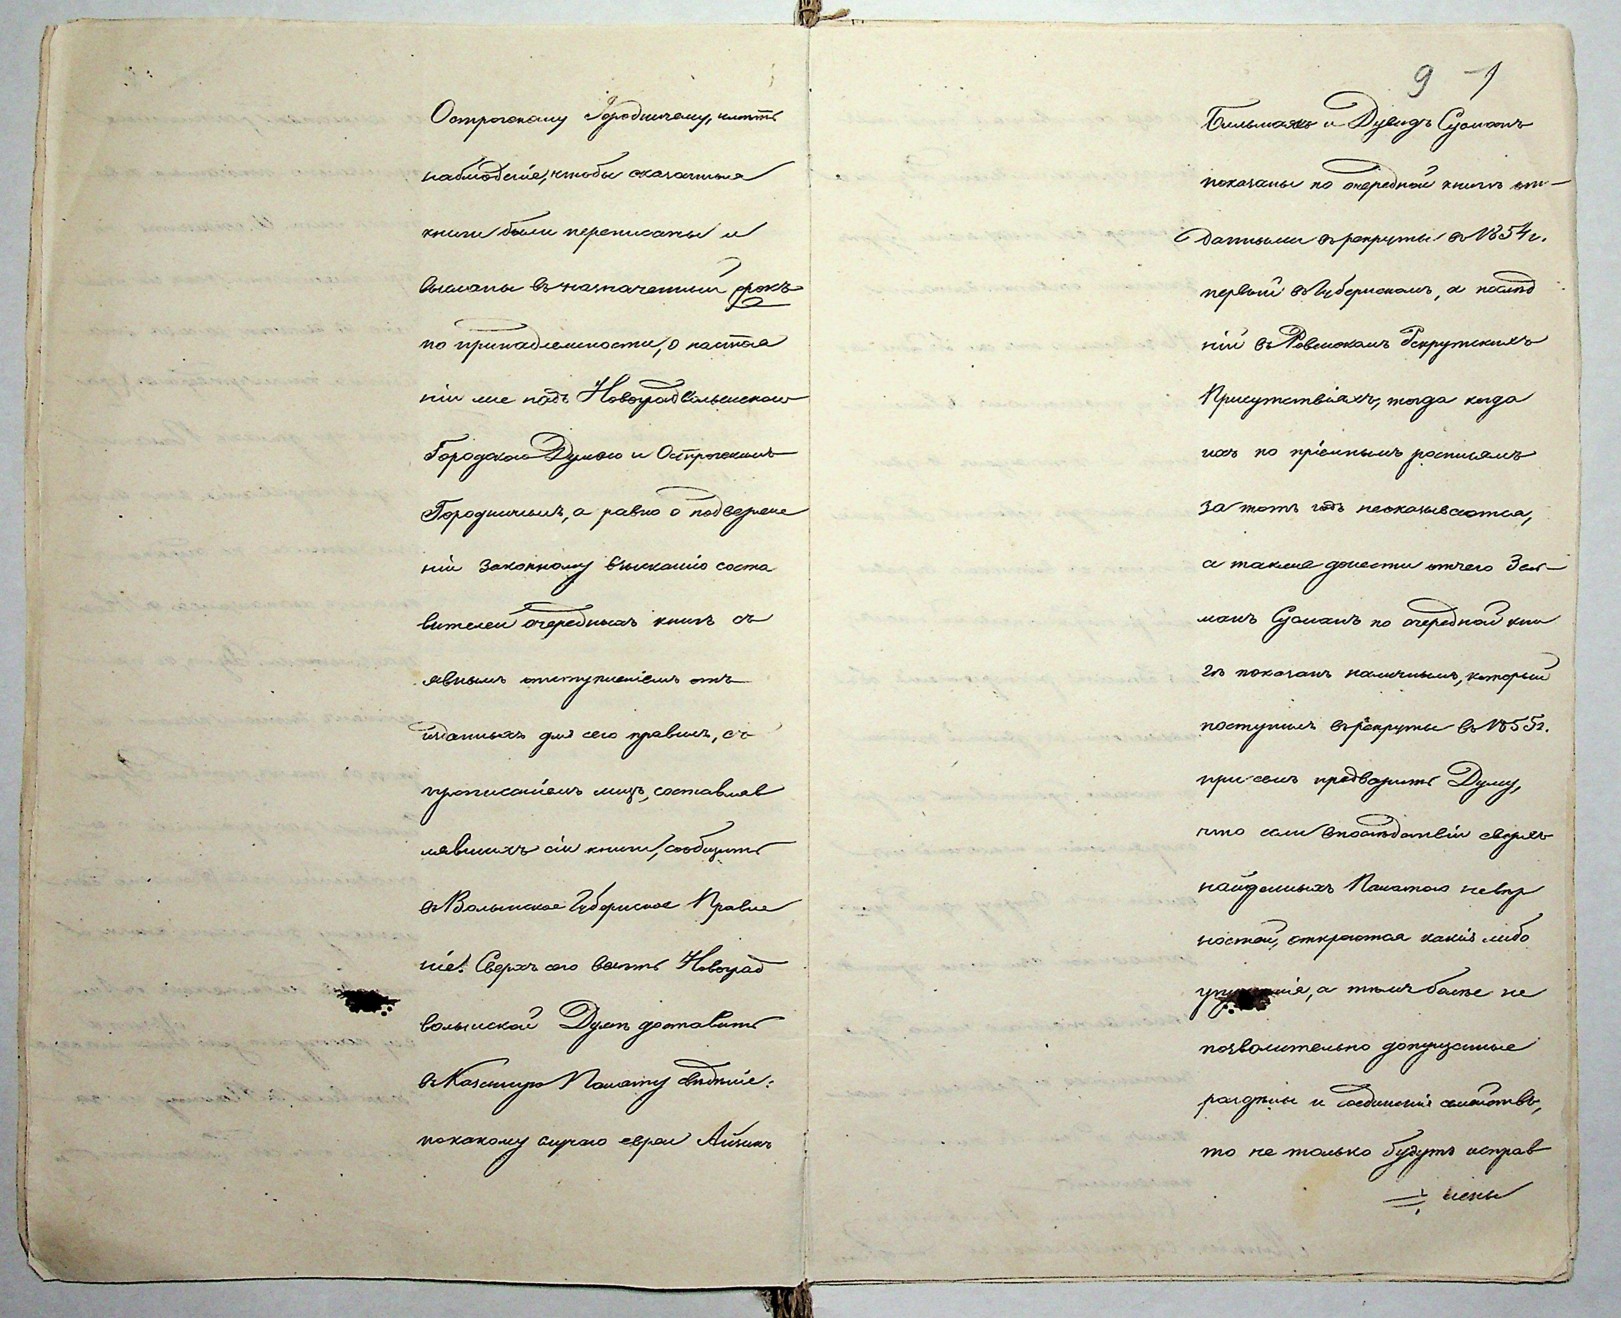 Острогскому Городничему, иметь
наблюденіе, чтобы означенныя
книги были переписаны и
высланы въ назначенный срокъ
по принадлежности, о настоя
ніи же подъ Новоградволынскою
Городскою Думою и Острогскимъ
Городничимъ, а равно о подверже
ніи законному взысканію соста
вителей очередныхъ книгъ съ
явнымъ отступленіемъ отъ
изданныхъ для сего правилъ, съ
прописаніемъ лицъ, составляв
лявшихъ сіи книги, сообщить
въ Волынское Губернское Правле
ніе. Сверхъ сего велѣть Новоград
волынской Думѣ доставить
въ Казенную Палату свѣденіе:
по какому случаю евреи Айзикъ
9 1
Бильмахъ и Дувидъ Сусманъ
показаны по очередной книгѣ от-
данными въ рекруты въ 1854 г.
первый въ Губернскомъ, а послѣд
ній въ Ровенскомъ Рекрутскихъ
Присутствіяхъ, тогда когда
ихъ по пріемнымъ росписямъ
за тотъ годъ неоказывается,
а также донести отчего Зел-
манъ Сусманъ по очередной кни
гѣ показанъ наличнымъ, который
поступилъ въ рекруты въ 1855 г.
при семъ предварить Думу,
что если впослѣдствіи сверхъ
найденныхъ Палатою невѣр
ностей, откроются какія либо
упущенія, а тѣмъ болѣе не
позволительно допущенные
раздѣлы и соединенія семействъ,
то не только будутъ исправ
лены